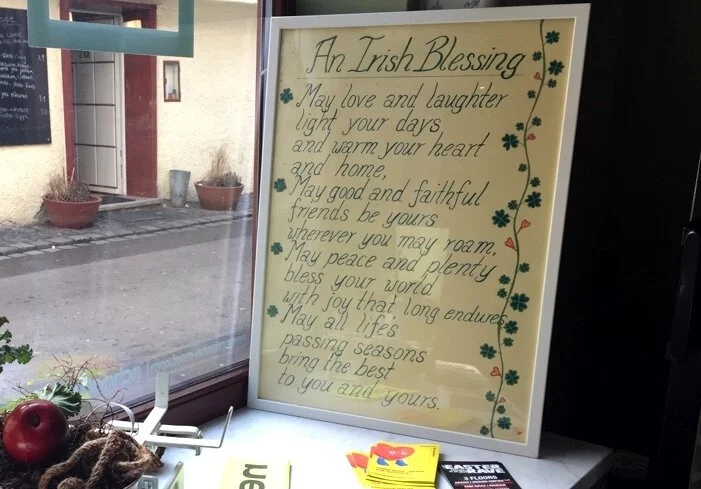 An Irish Blessing
May love and laughter
light your days,
and warm your heart
and home,
May good and faithful
friends be yours
wherever you may roam,
May peace and plenty
bless your world
with joy that long endures
May all life's
passing seasons
bring the best
to you and yours.
EASTER
RAVE
3 FLOORS